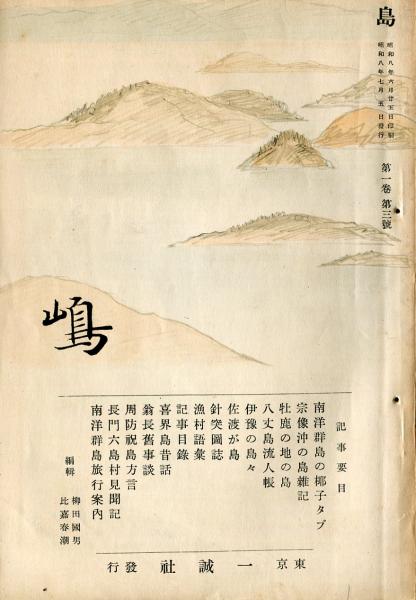 島
昭和八年六月廿五日印刷
昭和八年七月五日發行
第一卷 第三號
嶋
記事要目
南洋群島の椰子タブ
宗像沖の島雜記
牡鹿の地の島
八丈島流人帳
伊豫の島々
佐渡が島
針突圖誌
漁村語彙
記事目錄
喜界島昔話
翁長舊事談
周防祝島方言
長門六島村見聞記
南洋群島旅行案內
編輯
柳田國男
比嘉春潮
東京 一誠社 發行